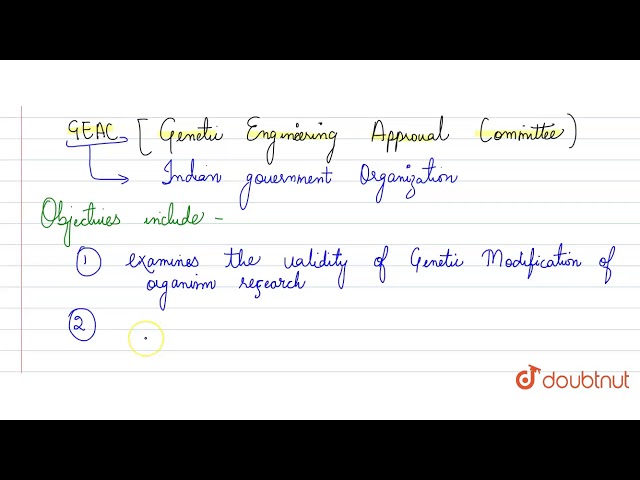 GEAC [Genetic Engineering Approval Committee)
Indian government Organization
Objectives include -
① examines the validity of Genetic Modification of
organism research
②
doubtnut